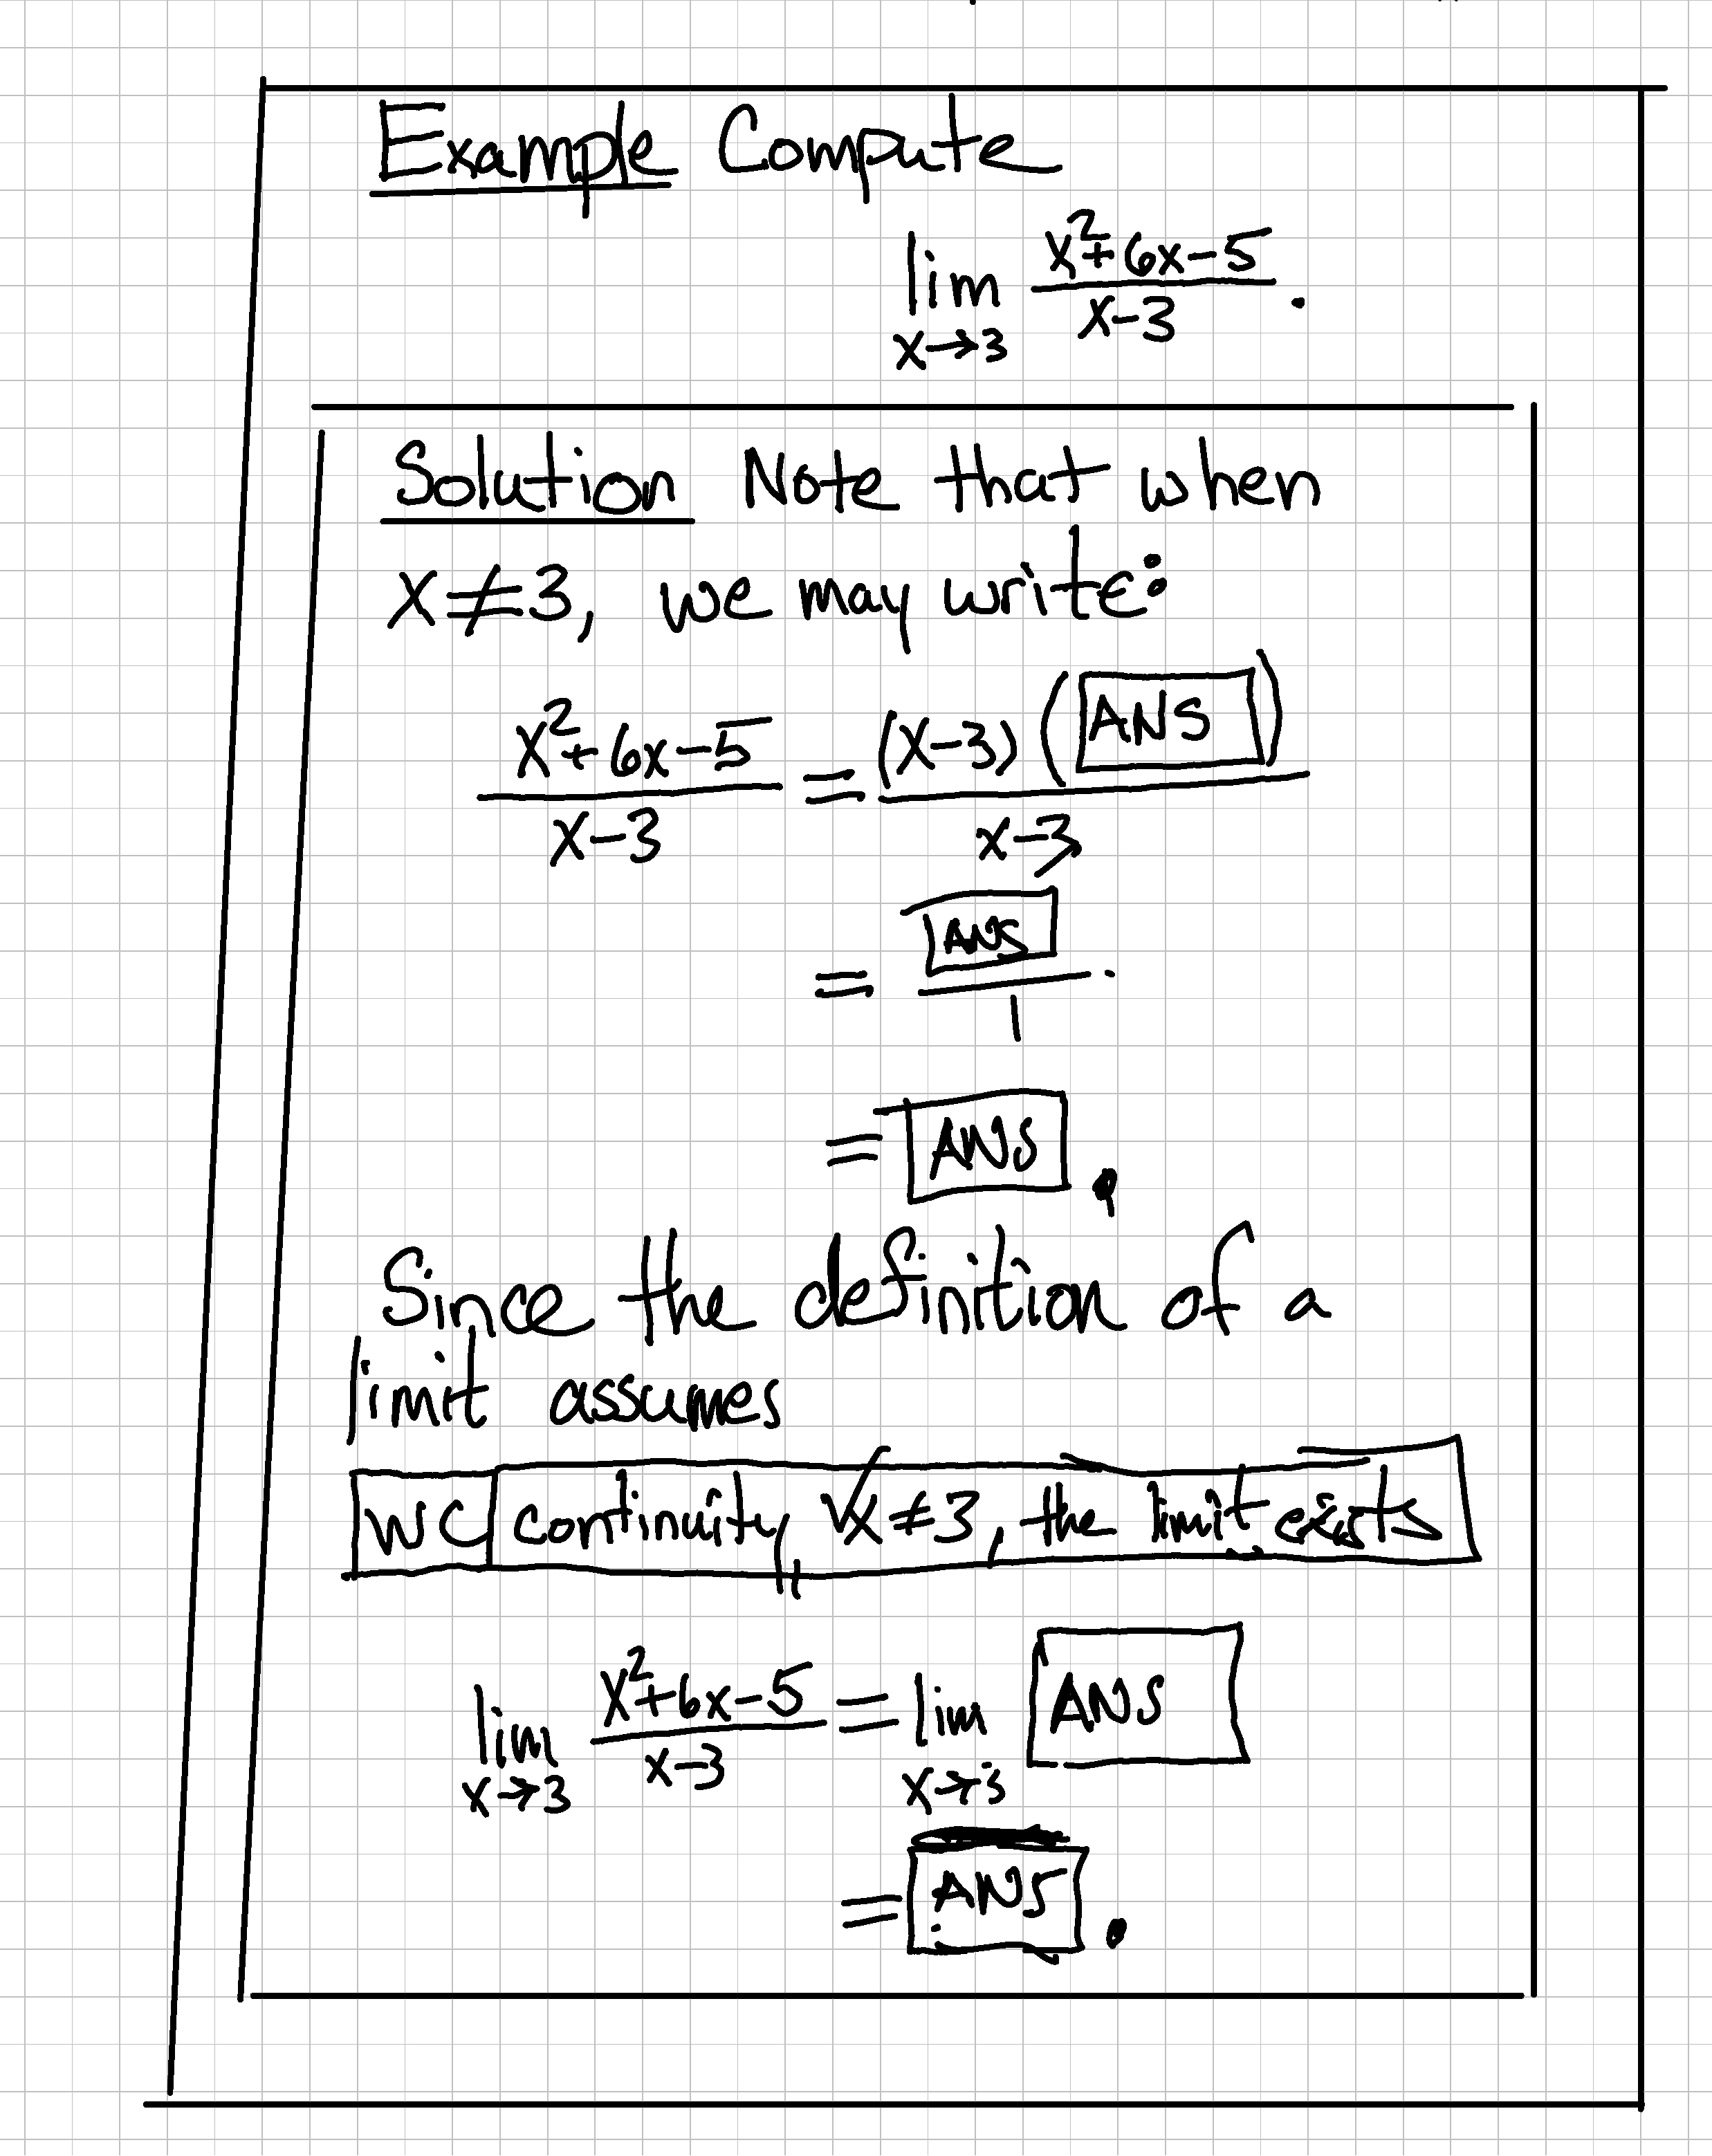 Example Compute
lim x→3 (x²+6x-5)/(x-3).
Solution Note that when
x≠3, we may write:
(x²+6x-5)/(x-3) = (x-3)(ANS)/(x-3)
= ANS/1.
= ANS.
Since the definition of a
limit assumes
WC continuity, ∀x≠3, the limit exists
lim x→3 (x²+6x-5)/(x-3) = lim x→3 ANS
= ANS.